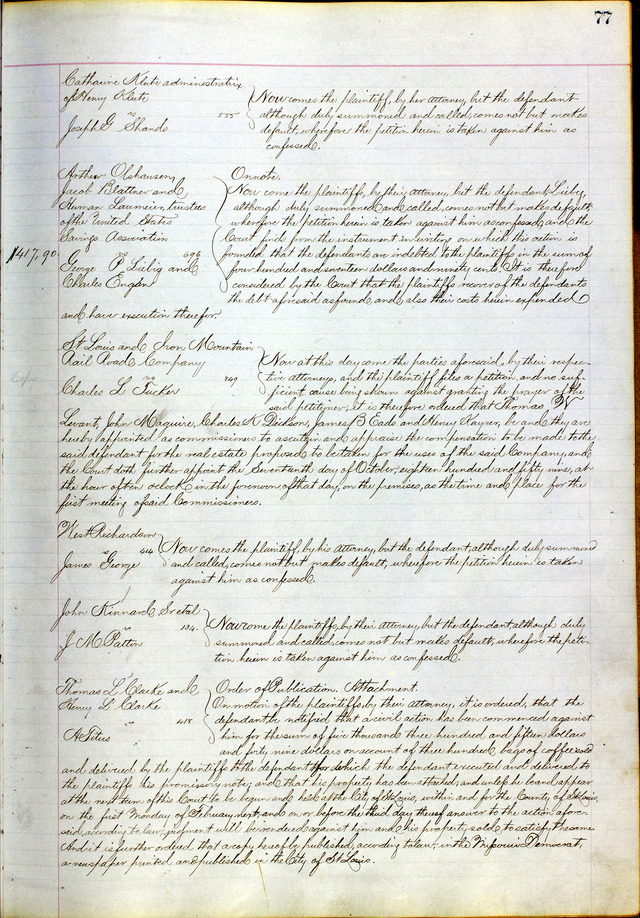 77
Catharine Klute administratrix
of Henry Klute
vs 535
Joseph G Shands
Now comes the plaintiff, by her attorney, but the defendant
although duly summoned and called, comes not but makes
default, wherefore the petition herein is taken against him as
confessed.
Arthur Olshausen,
Jacob Blattner and
Herman Laumeier, trustees
of the United States
Savings Association
vs 696
George P Liebig and
Charles Engan
$417,90
On note.
Now come the plaintiffs, by their attorney, but the defendant, Liebig,
although duly summoned and called, comes not but makes default,
wherefore the petition herein is taken against him as confessed and the
Court find from the instrument in writing on which this action is
founded that the defendants are indebted to the plaintiffs in the sum of
four hundred and seventeen dollars and ninety cents. It is therefore
considered by the Court that the plaintiffs recover of the defendants
the debt aforesaid as found, and also their costs herein expended
and have execution therefor.
St Louis and Iron Mountain
Rail Road Company
vs 349
Charles L Tucker
Copy
Now at this day come the parties aforesaid, by their respec-
tive attorneys, and the plaintiff files a petition, and no suf-
ficient cause being shown against granting the prayer of the
said petitioner, it is therefore ordered that Thomas W
Levant, John Maguire, Charles K Dickson, James B Eads and Henry Kayser, be and they are
hereby appointed as commissioners to ascertain and appraise the compensation to be made to the
said defendant for the real estate proposed to be taken for the uses of the said Company, and
the Court doth further appoint the Seventeenth day of October, eighteen hundred and fifty nine, at
the hour of ten oclock in the forenoon of that day, on the premises, as the time and place for the
first meeting of said Commissioners.
West Richardson
vs 414
James George
Now comes the plaintiff, by his attorney, but the defendant, although duly summoned
and called, comes not but makes default, wherefore the petition herein is taken
against him as confessed.
John Kinnard, Sr et al
vs 124
J McPatton
Now come the plaintiffs, by their attorney, but the defendant, although duly
summoned and called, comes not but makes default, wherefore the peti-
tion herein is taken against him as confessed.
Thomas L Clarke and
Henry L Clarke
vs 415
A Titus
Order of Publication. Attachment.
On motion of the plaintiffs, by their attorney, it is ordered, that the
defendant be notified that a civil action has been commenced against
him for the sum of five thousand three hundred and fifteen dollars
and forty nine dollars on account of three hundred bags of coffee sold
and delivered by the plaintiffs to the defendant for which the defendant executed and delivered to
the plaintiffs his promissory note; and that his property has been attached, and unless he be and appear
at the next term of this Court to be begun and held at the City of St Louis, within and for the County of St Louis,
on the first Monday of February next, and on or before the third day thereof answer to the action afore-
said, according to law, judgment will be rendered against him and his property sold to satisfy the same.
And it is further ordered that a copy hereof be published, according to law, in the Missouri Democrat,
a newspaper printed and published in the City of St Louis.